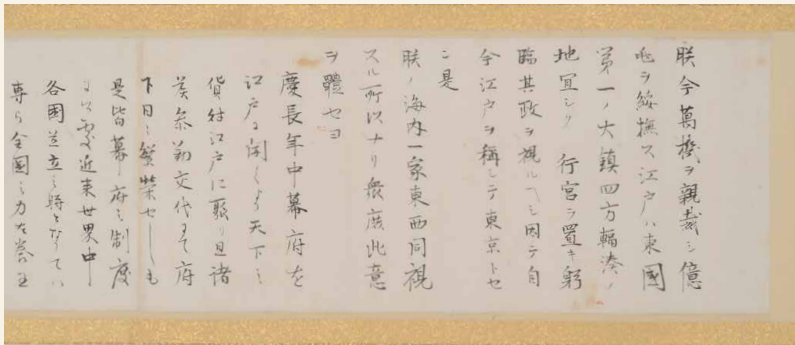 朕今萬機ヲ親裁シ億
兆ヲ綏撫ス江戸ハ東國
第一ノ大鎮四方輻湊ノ
地宜シク 行宮ヲ置キ躬
臨其政ヲ視ルヘシ因テ自
今江戸ヲ稱シテ東京トセ
ン是
朕ノ海内一家東西同視
スル所以ナリ衆庶此意
ヲ體セヨ
慶長年中幕府を
江戸に開くより天下之
貨財江戸に聚り且諸
参勤交代にて府
下日々繁榮せしも
是皆幕府之制度
處近来世界中
各国並立之時となりては
専ら全国之力を